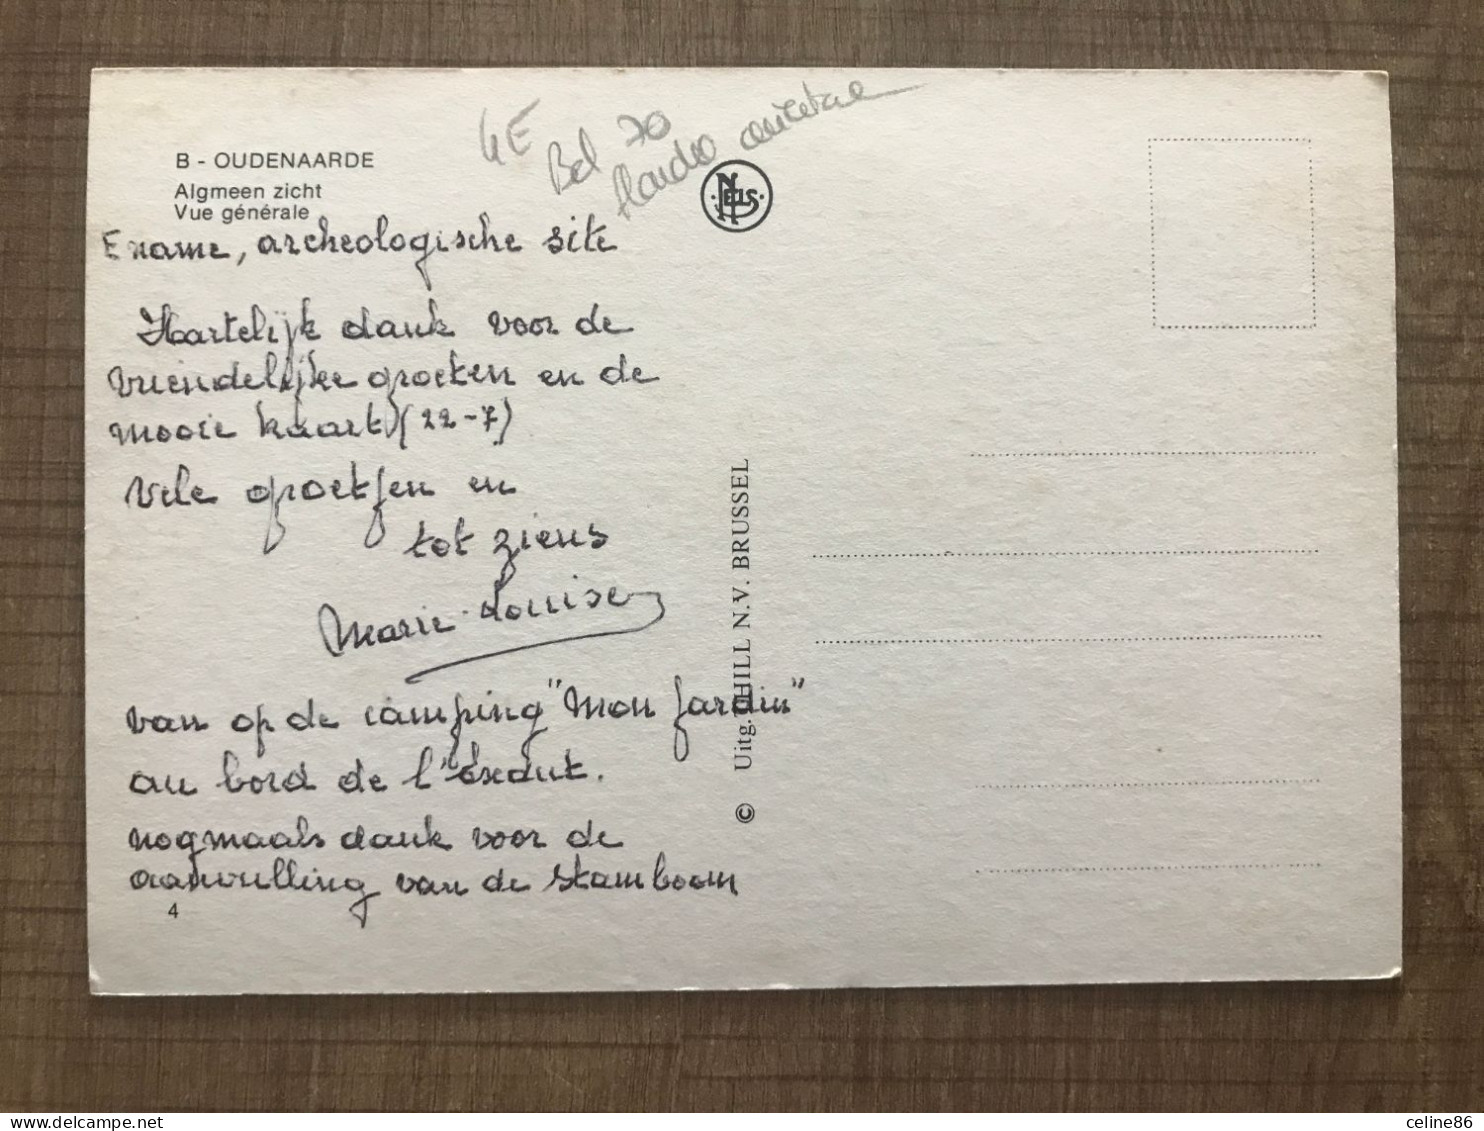 4E
Bel 70
B - OUDENAARDE
Algmeen zicht
Vue générale
NELS
Ename, archeologische site
Hartelijk dank voor de
vriendelijke groeten en de
mooie kaart (22-7)
Vele groetjen en
tot ziens
Marie-Louise
van op de camping "Mon Jardin"
au bord de l'éscaut.
nogmaals dank voor de
aanvulling van de stamboom
4
© Uitg. THILL N.V. BRUSSEL
delcampe.net
celine86